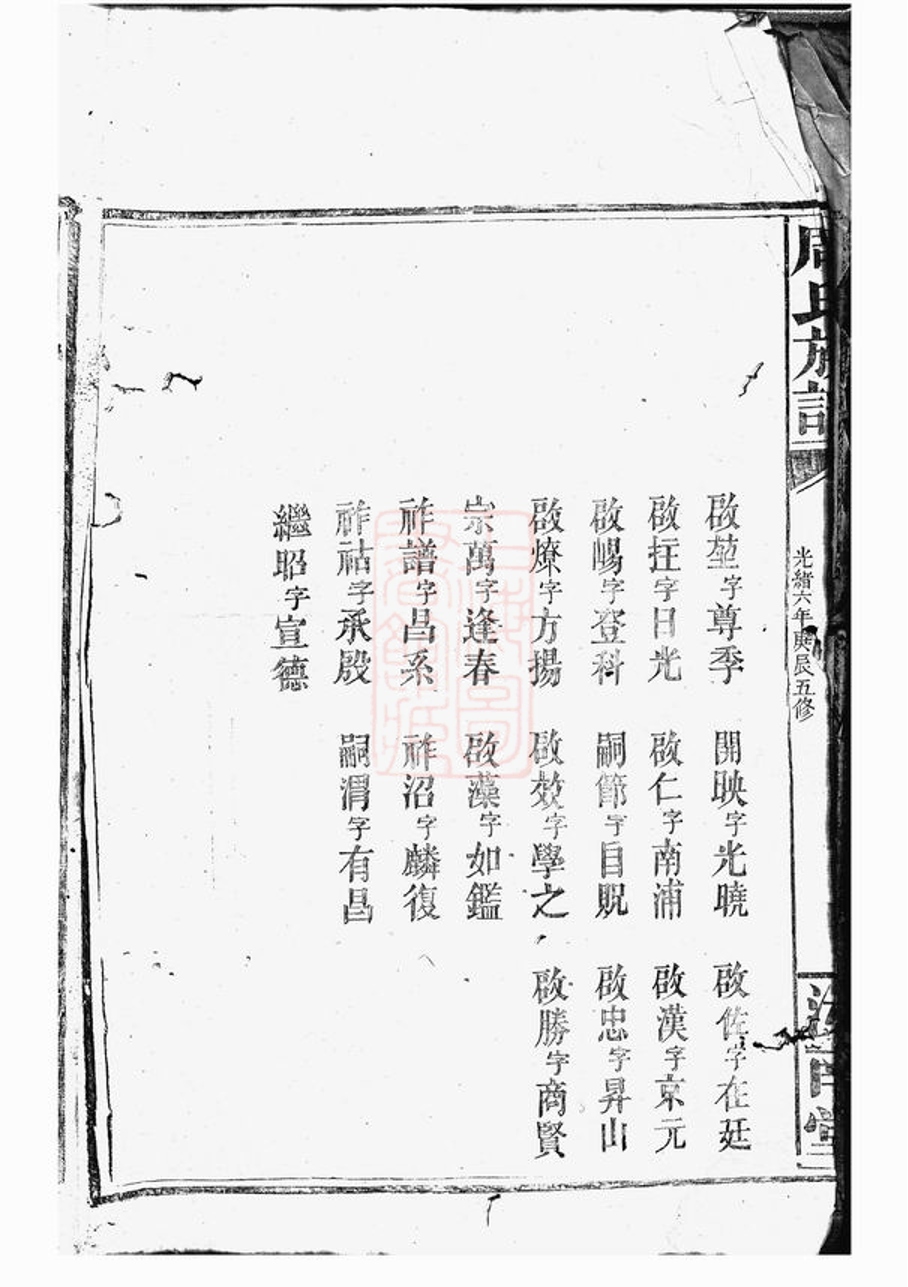 周氏族譜
光緒六年庚辰五修
堂
啟堃字尊季 開映字光曉 啟佐字在廷
啟抂字日光 啟仁字南浦 啟漢字京元
啟崵字登科 嗣節字自貺 啟忠字昇山
啟燎字方揚 啟效字學之 啟勝字商賢
宗萬字逢春 啟藻字如鑑
祚譜字昌系 祚沼字麟復
祚祜字承殷 嗣渭字有昌
繼昭字宣德